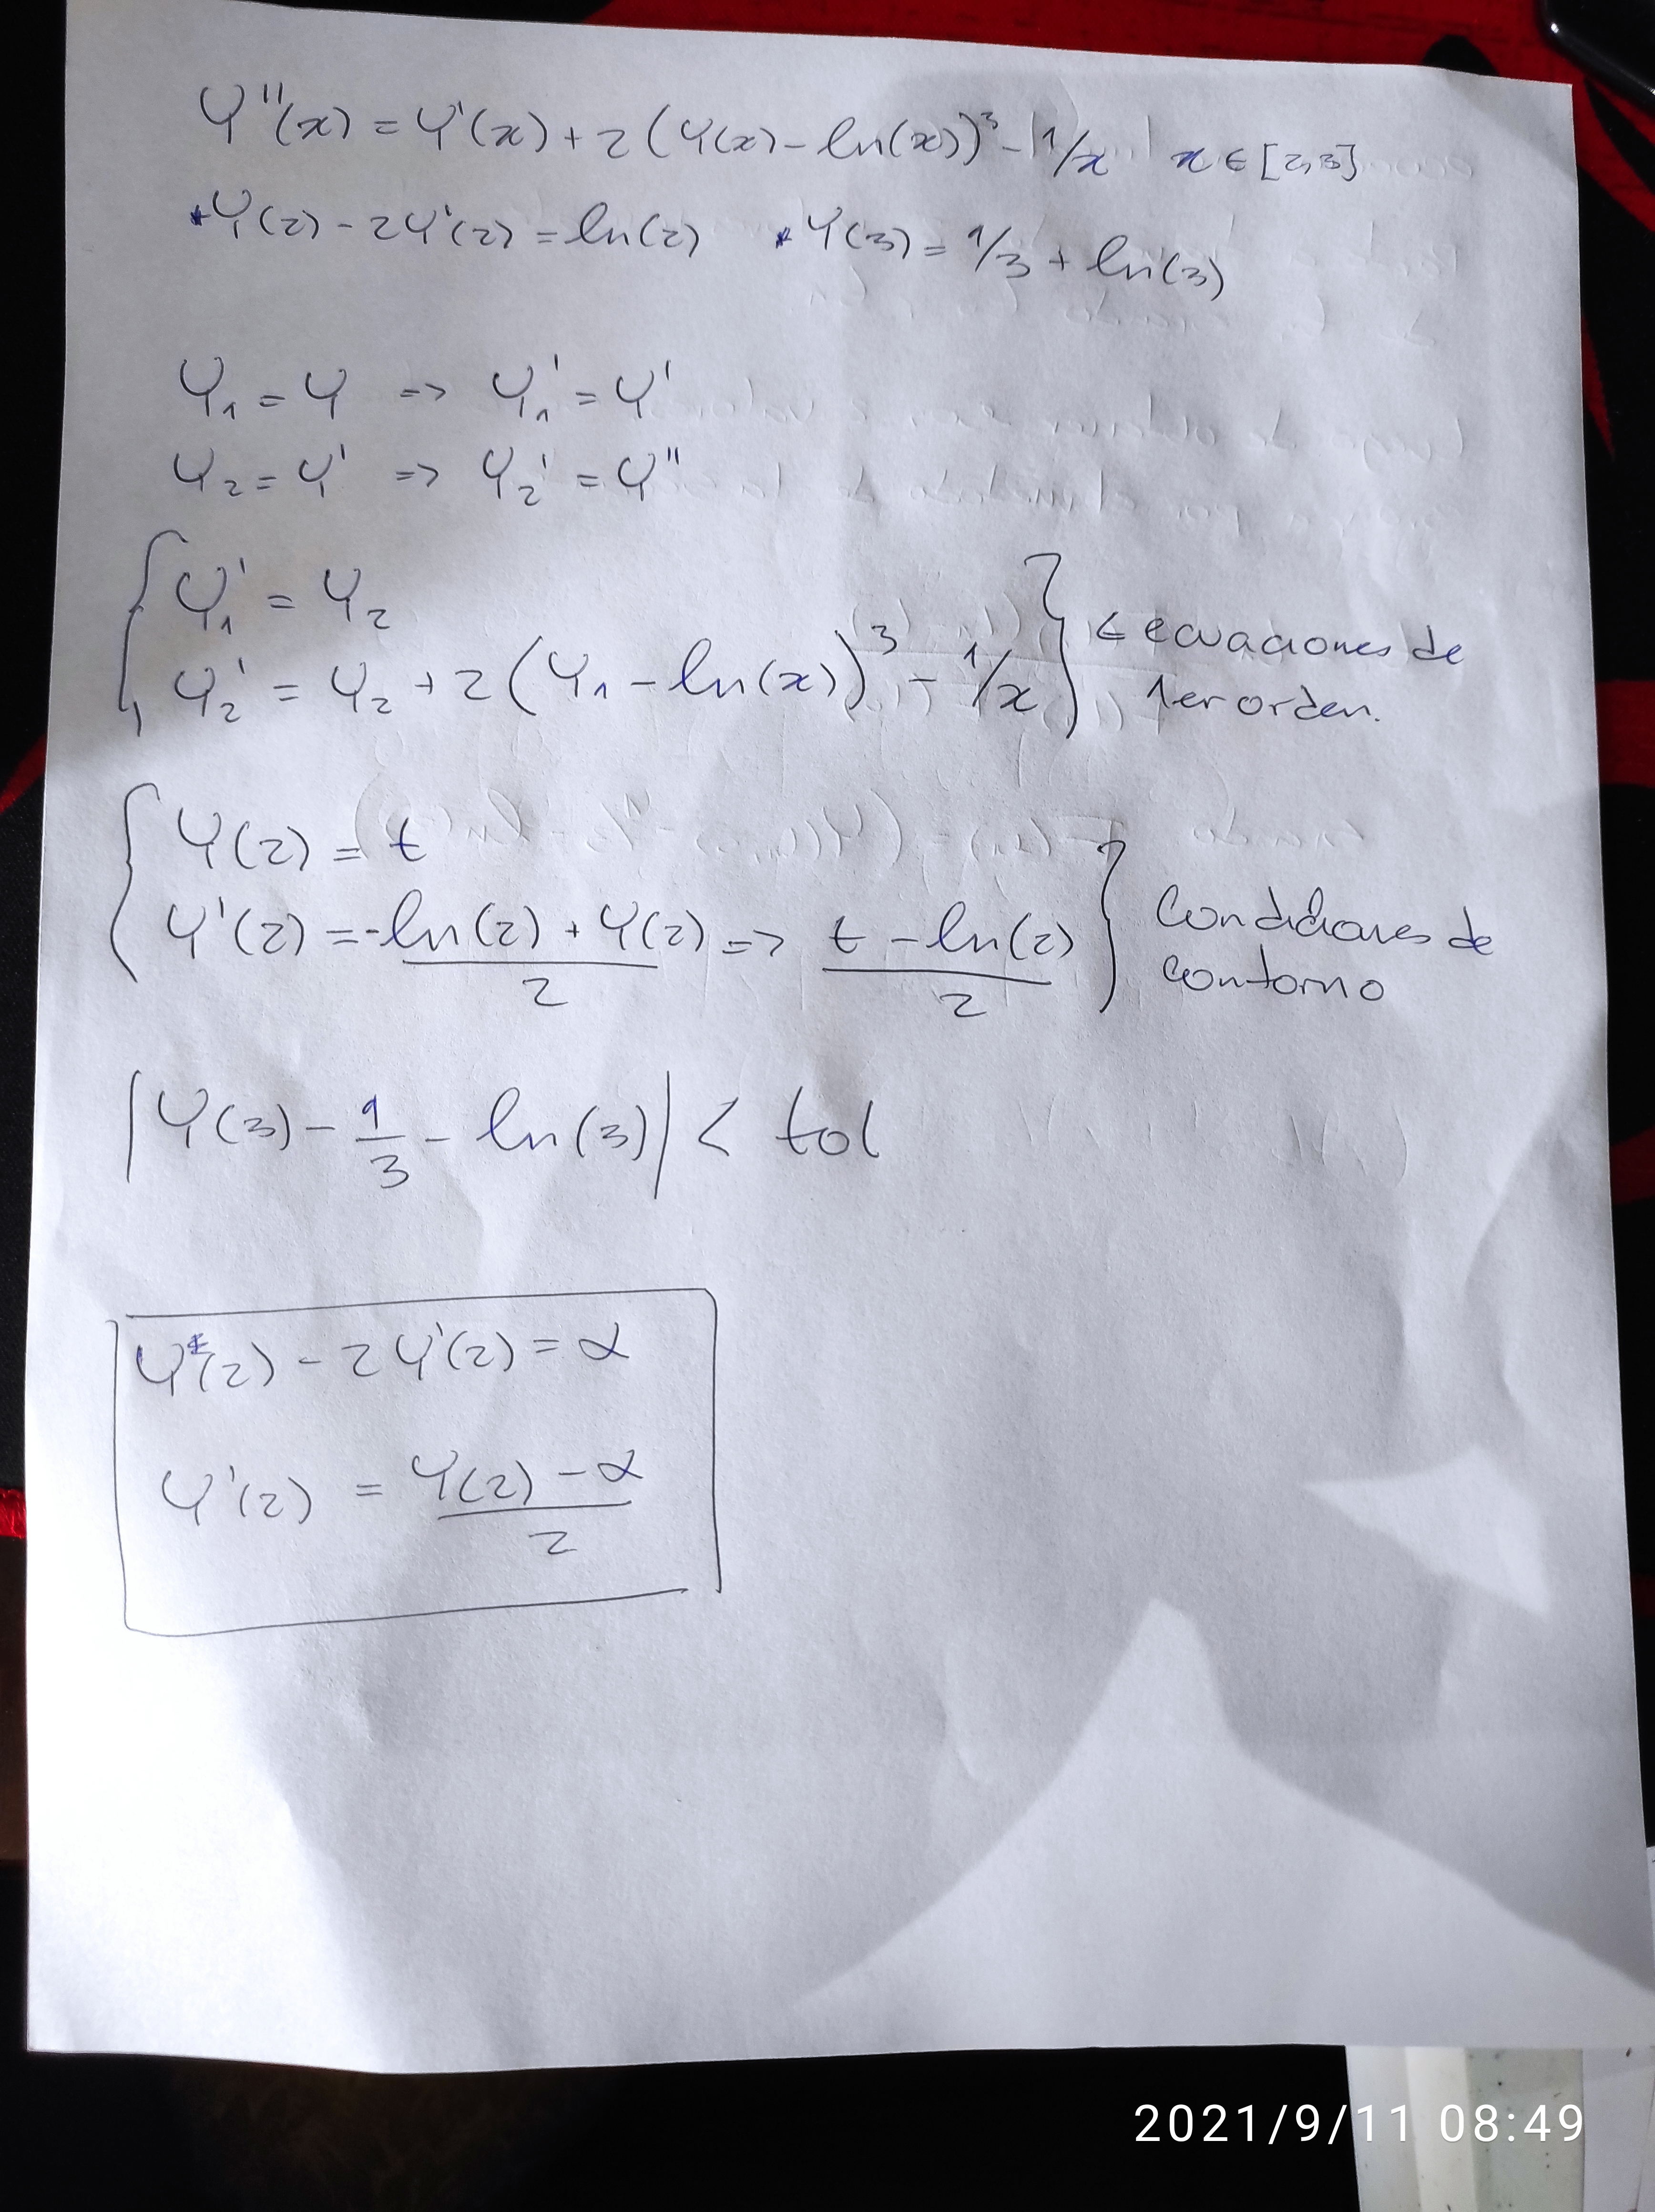 Y''(x) = Y'(x) + 2(Y(x) - ln(x))³ - 1/x x ∈ [2,3]
*Y(2) - 2Y'(2) = ln(2) *Y(3) = 1/3 + ln(3)
Y₁ = Y => Y₁' = Y'
Y₂ = Y' => Y₂' = Y''
{ Y₁' = Y₂
Y₂' = Y₂ + 2(Y₁ - ln(x))³ - 1/x } ← ecuaciones de 1er orden.
{ Y(2) = t
Y'(2) = -ln(2) + Y(2) / 2 => t - ln(2) / 2 } Condiciones de contorno
|Y(3) - 1/3 - ln(3)| < tol
Y(2) - 2Y'(2) = α
Y'(2) = Y(2) - α / 2
2021/9/11 08:49